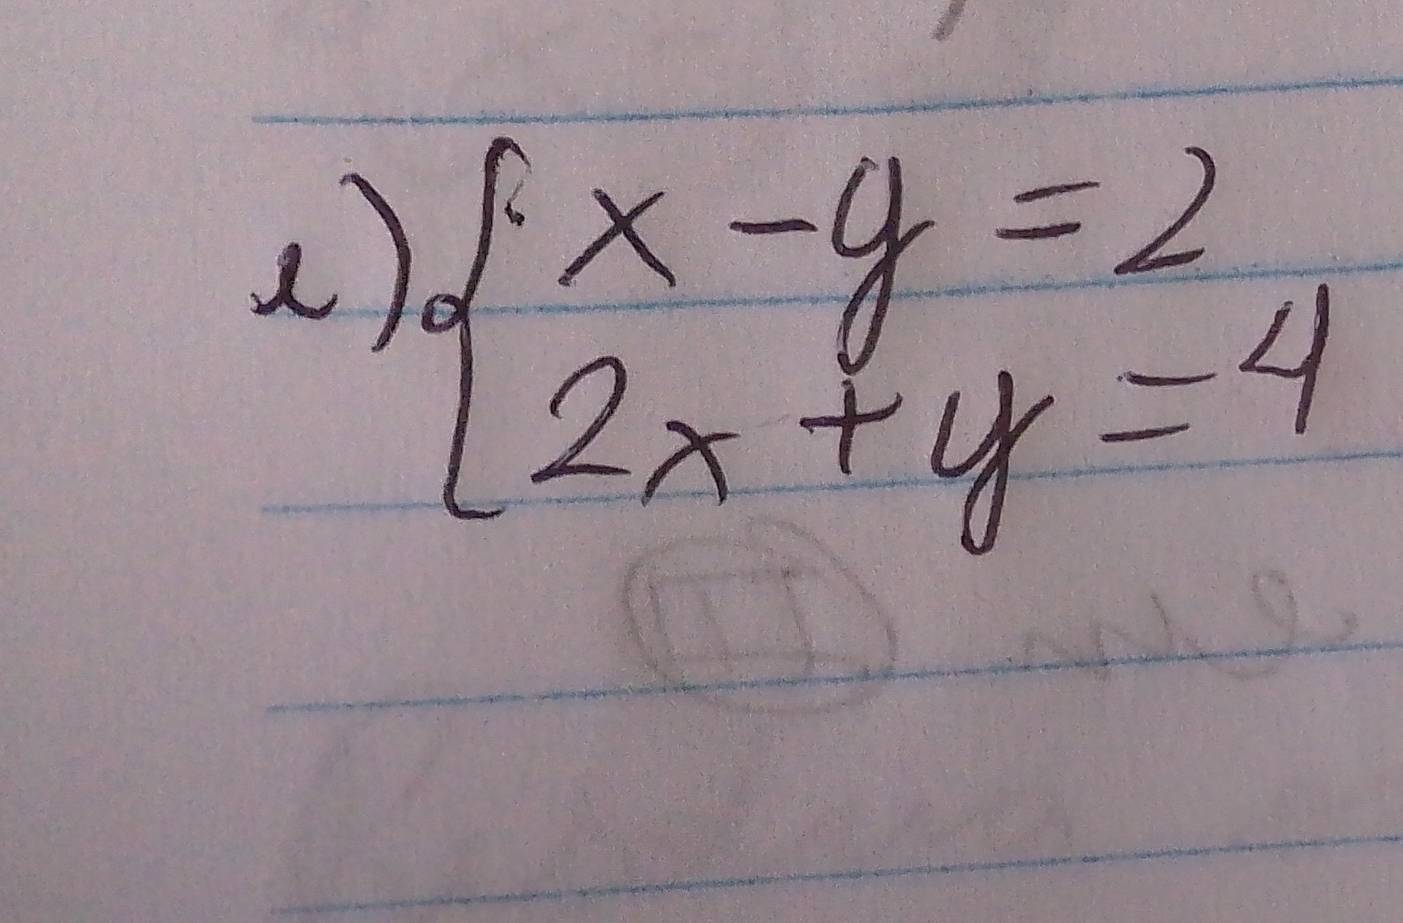 e) { x - y = 2
2x + y = 4